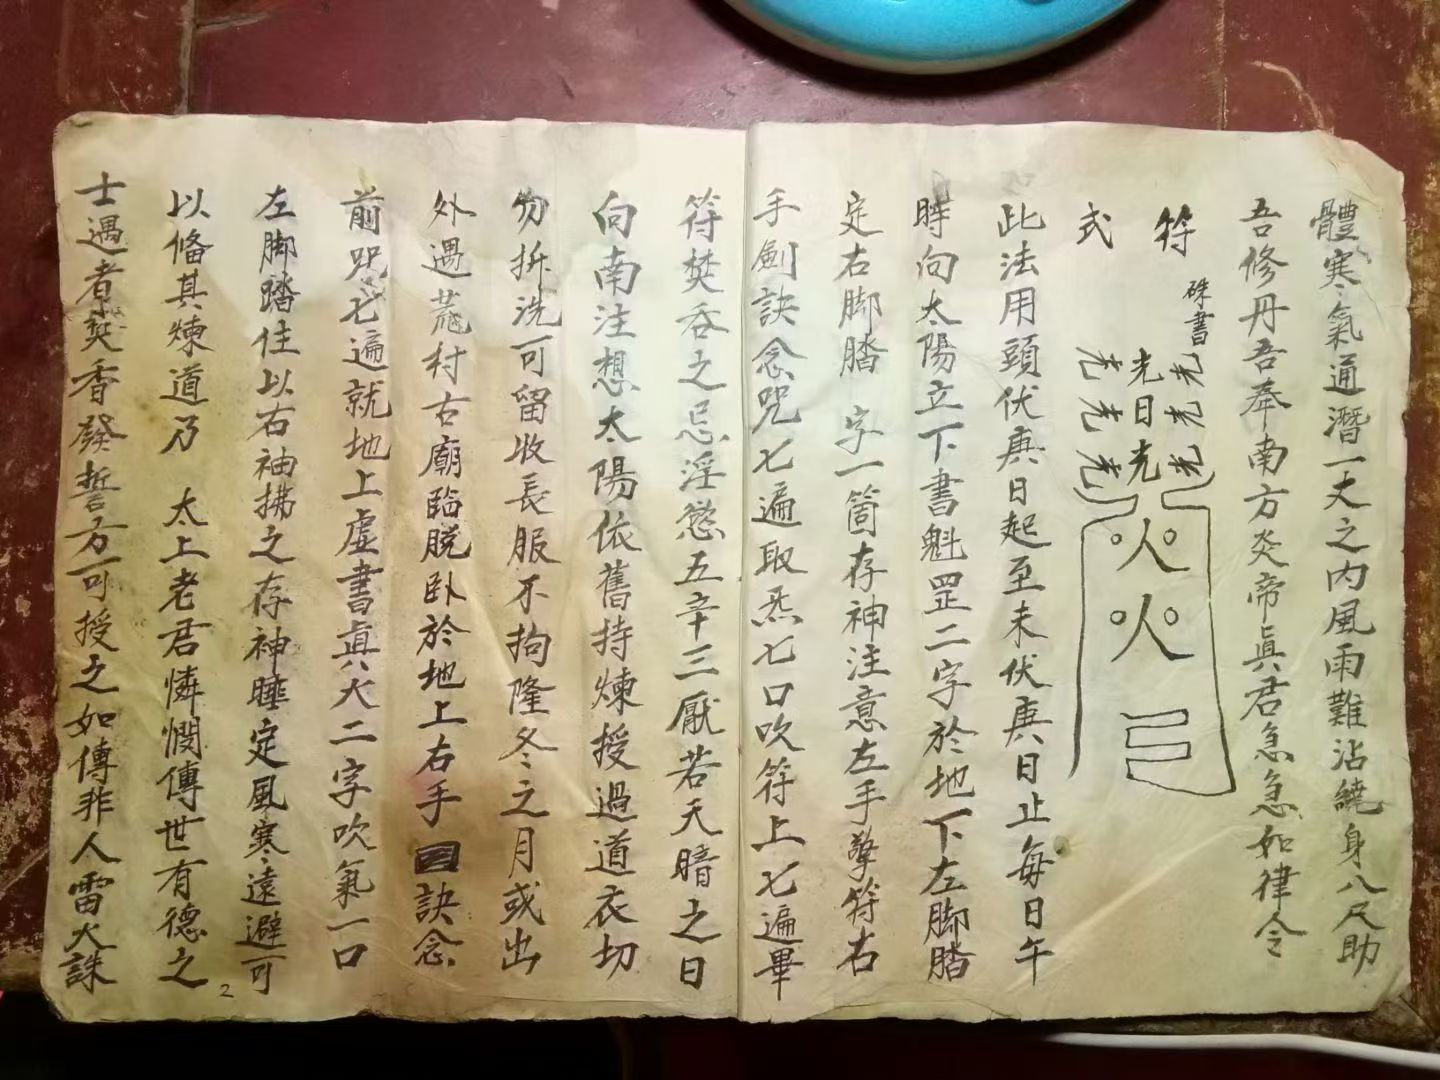 體寒氣通潛一丈之內風雨難沾繞身八尺助
吾修丹吾奉南方炎帝眞君急急如律令
符
式
硃書
光光光
光日光
光光光
火
火
此法用頭伏庚日起至末伏庚日止每日午
時向太陽立下書魁罡二字於地下左脚踏
定右脚踏 字一箇存神注意左手擎符右
手劍訣念咒七遍取炁七口吹符上七遍畢
符焚吞之忌淫慾五辛三厭若天暗之日
向南注想太陽依舊持煉授過道衣切
勿拆洗可留收長服不拘隆冬之月或出
外遇荒村古廟臨脱卧於地上右手訣念
前咒七遍就地上虛書眞火二字吹氣一口
左脚踏住以右袖拂之存神睡定風寒遠避可
以修其煉道乃 太上老君憐憫傳世有德之
士遇者焚香發誓方可授之如傳非人雷火誅
2